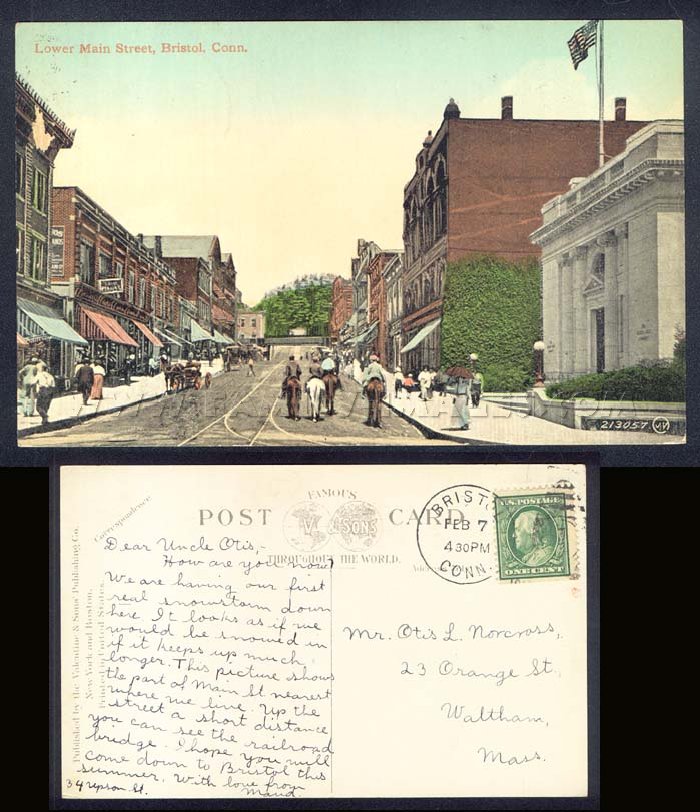 Lower Main Street, Bristol, Conn.
213057
JV
FAMOUS
POST CARD
V & SONS
THROUGHOUT THE WORLD.
Correspondence
Published by the Valentine & Sons' Publishing Co.
New York and Boston.
Printed in United States.
BRISTOL
FEB 7
430PM
CONN.
U.S. POSTAGE
ONE CENT
Dear Uncle Otis,-
How are you now?
We are having our first
real snowstorm down
here. It looks as if we
would be snowed in
if it keeps up much
longer. This picture shows
the part of Main St nearest
where we live. Up the
street a short distance
you can see the railroad
bridge. I hope you will
come down to Bristol this
summer. With love from
Maud
34 Upson St.
Mr. Otis L. Norcross,
23 Orange St.,
Waltham,
Mass.